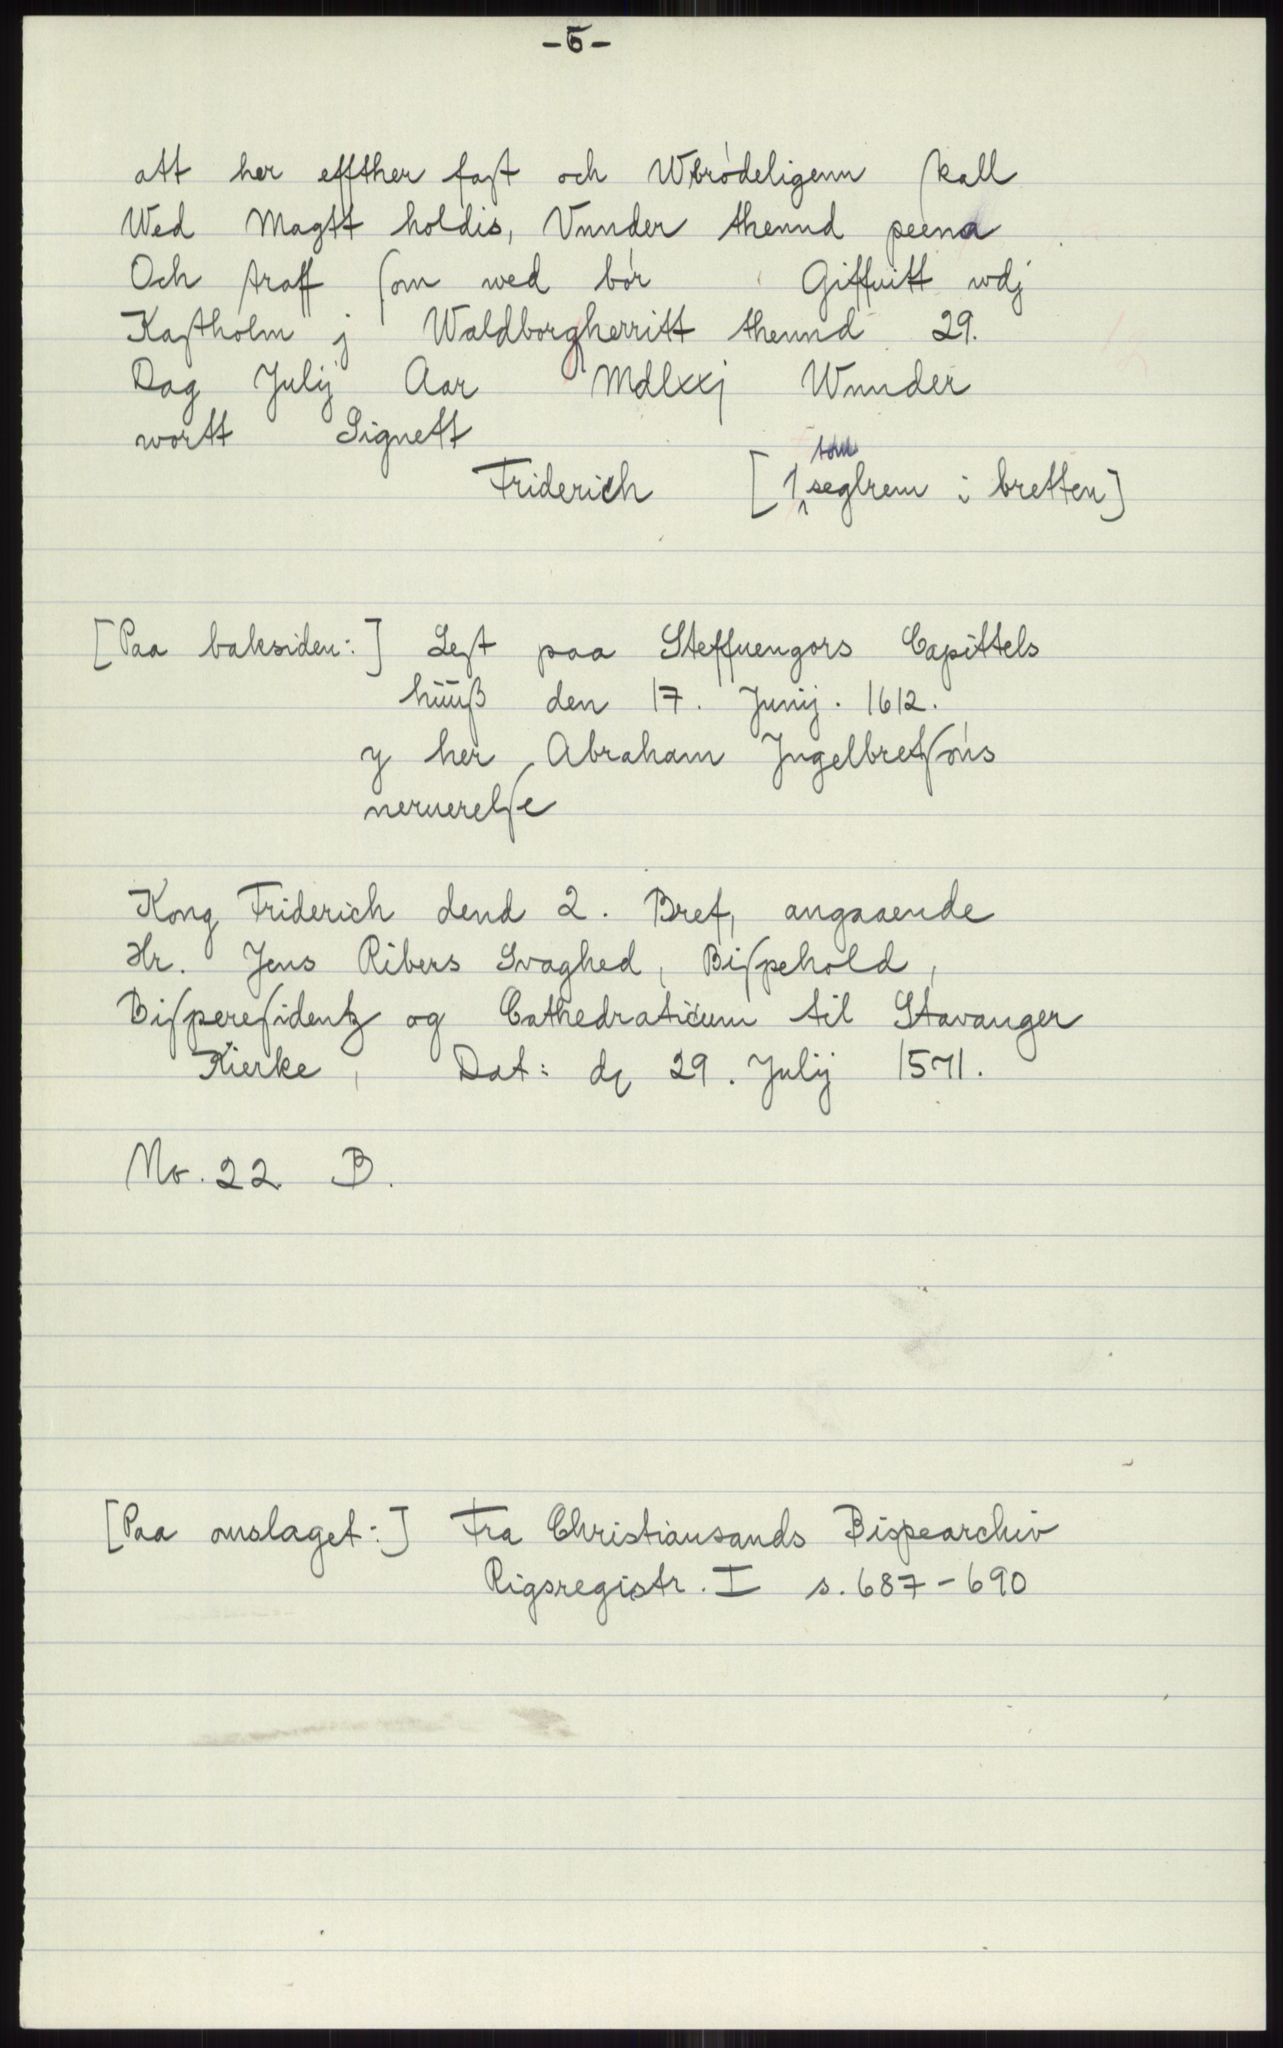 -5-
att her effther fast och Wbrødeligenn skall
Wed Magtt holdis, Vnnder thennd peena
Och straff som wed bør Giffuitt wdj
Kastholm j Waldborgherritt thennd 29.
Dag Julij Aar Mdlxxj Wnnder
wortt Signett
Friderich [1 tom seglrem i bretten]
[Paa baksiden:] Lest paa Steffuengors Capittels
hüüß den 17. Junij. 1612.
y her Abraham Jngelbretsøns
neruerelse
Kong Friderich dend 2. Bref, angaaende
Hr. Jens Ribers Svaghed, Bispehold,
Bisperesidentz og Cathedraticum til Stavanger
Kierke, Dat: d 29. Julij 1571.
No. 22 B.
[Paa omslaget:] Fra Christiansands Bispearchiv
Rigsregistr. I s. 687-690